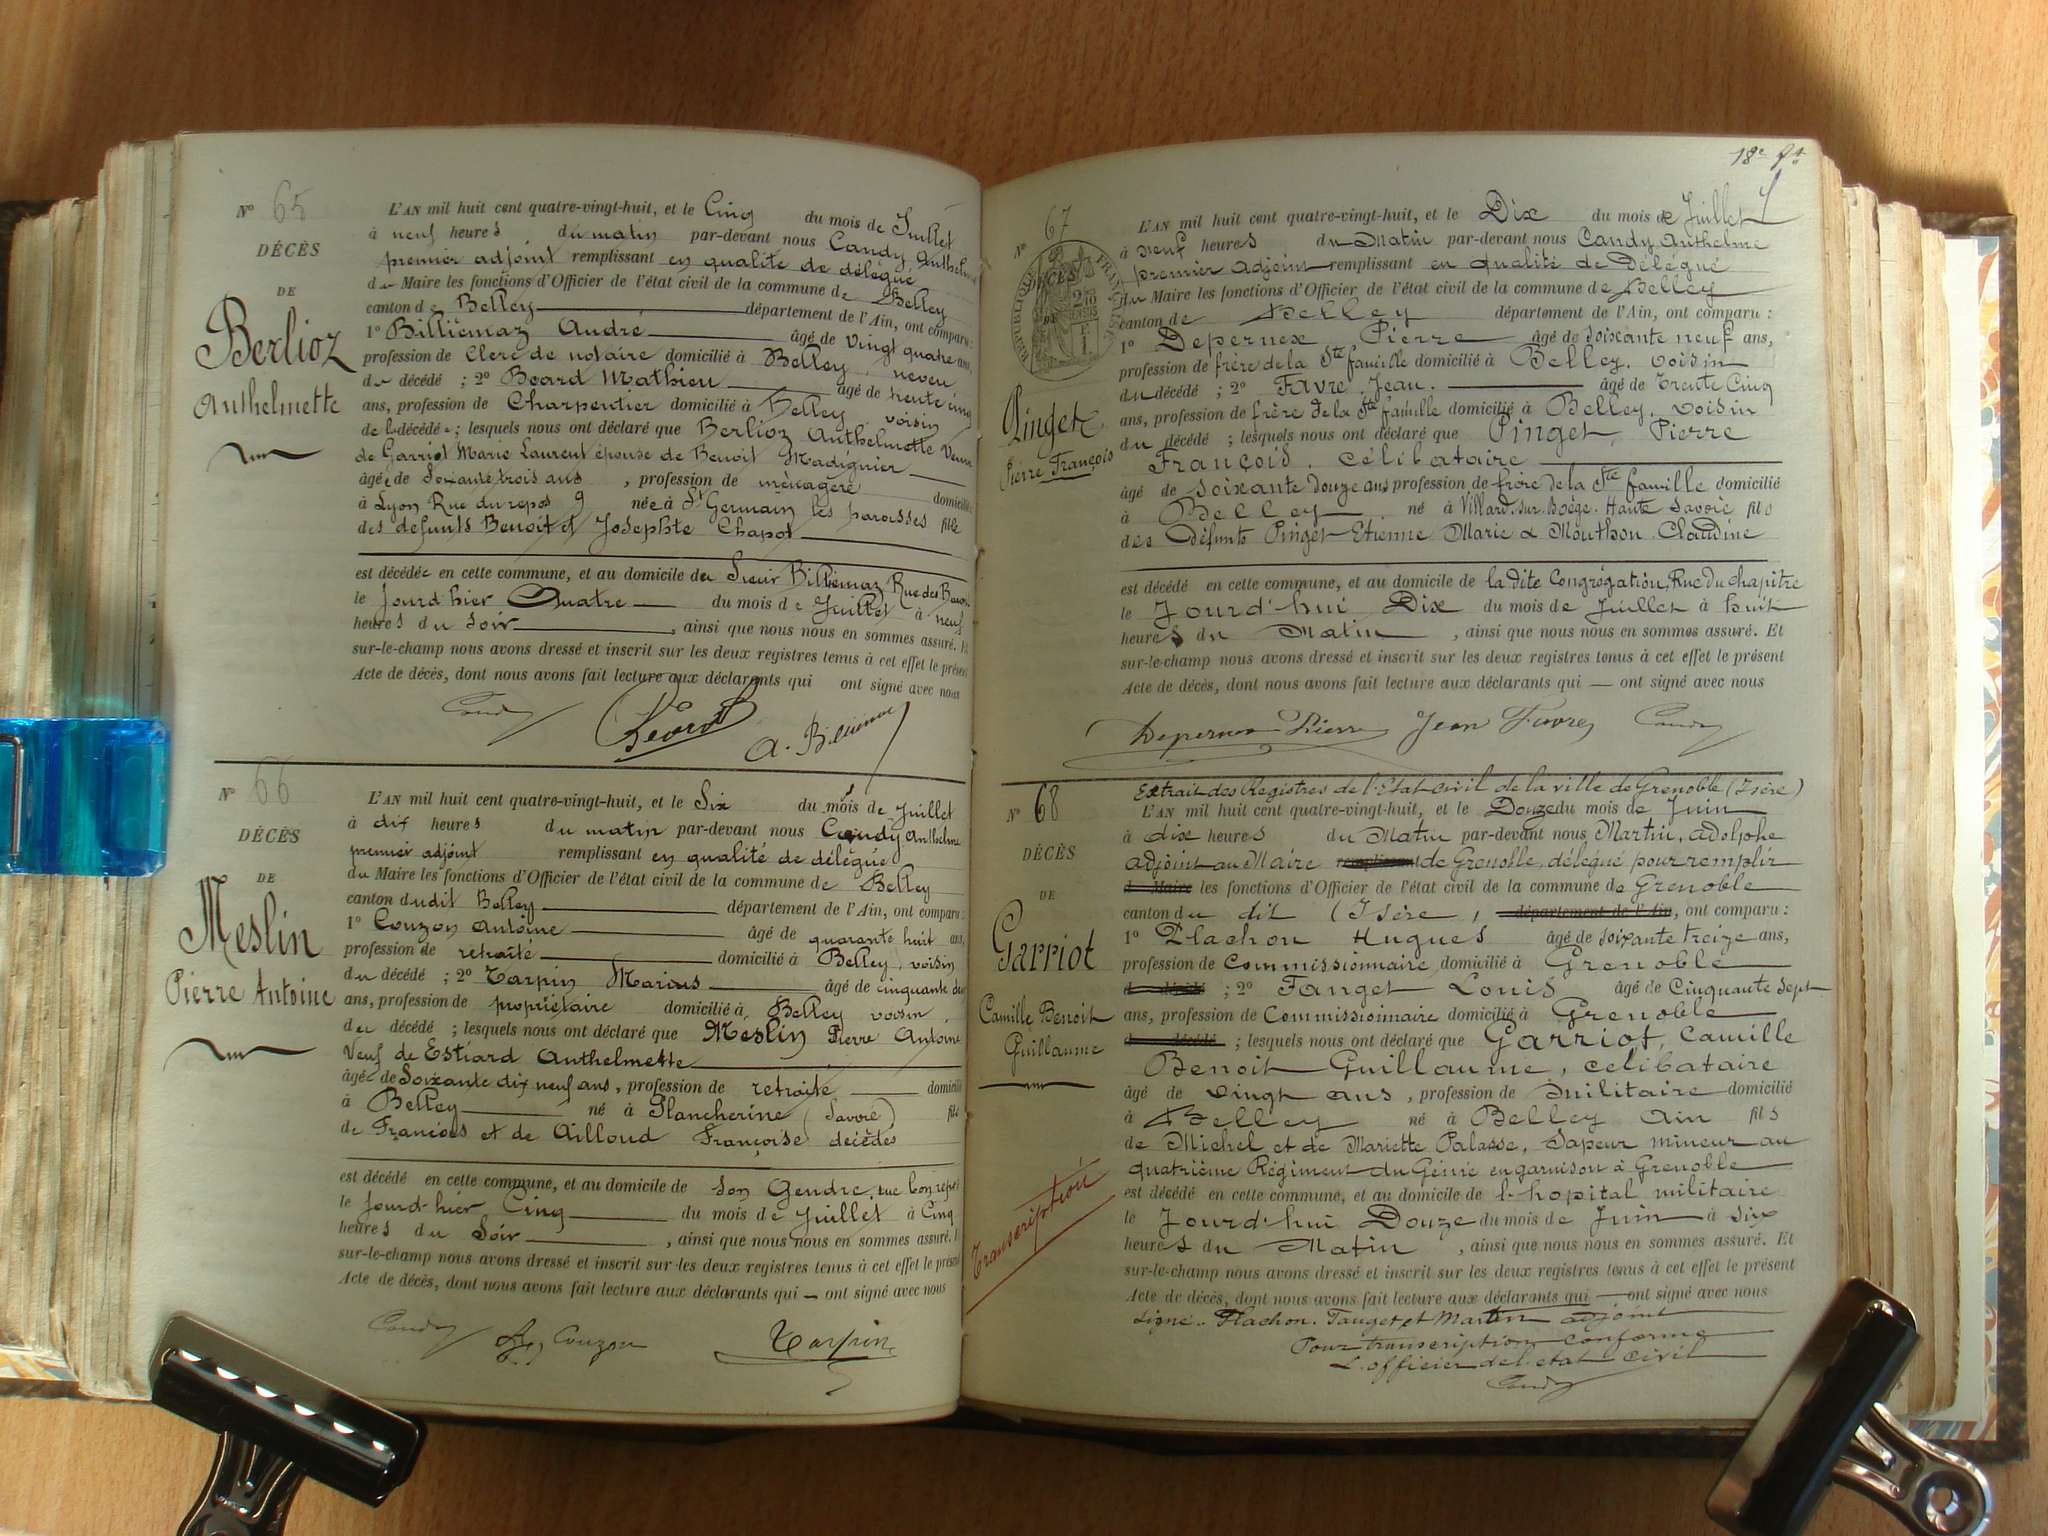 N° 65
DÉCÈS
DE
Berlioz
Anthelmette
L'AN mil huit cent quatre-vingt-huit, et le Cinq du mois de Juillet
à neuf heures du matin par-devant nous Candy, Anthelme
premier adjoint remplissant en qualité de délégué
du Maire les fonctions d'Officier de l'état civil de la commune de Belley
canton de Belley département de l'Ain, ont comparu :
1° Billiémaz André âgé de vingt quatre ans,
profession de Clerc de notaire domicilié à Belley, neveu
du décédé ; 2° Béard Mathieu âgé de trente cinq
ans, profession de Charpentier domicilié à Belley voisin
de la décédée ; lesquels nous ont déclaré que Berlioz Anthelmette Veuve
de Garriot Marie Laurent épouse de Benoit Madignier
âgée de Soixante trois ans , profession de ménagère domiciliée
à Lyon Rue du repos 9 née à St Germain les paroisses fille
des defunts Benoit et Josephte Chapot
est décédée en cette commune, et au domicile du Sieur Billiémaz, Rue des Baron
le Jourd'hier Quatre du mois de Juillet à neuf
heures du Soir , ainsi que nous nous en sommes assuré. Et
sur-le-champ nous avons dressé et inscrit sur les deux registres tenus à cet effet le présent
Acte de décès, dont nous avons fait lecture aux déclarants qui ont signé avec nous
Candy Béard A. Billiémaz
N° 66
DÉCÈS
DE
Meslin
Pierre Antoine
L'AN mil huit cent quatre-vingt-huit, et le Six du mois de Juillet
à dix heures du matin par-devant nous Candy Anthelme
premier adjoint remplissant en qualité de délégué
du Maire les fonctions d'Officier de l'état civil de la commune de Belley
canton dudit Belley département de l'Ain, ont comparu :
1° Couzon Antoine âgé de quarante huit ans,
profession de retraité domicilié à Belley, voisin
du décédé ; 2° Tarpin Marius âgé de cinquante deux
ans, profession de propriétaire domicilié à Belley voisin
du décédé ; lesquels nous ont déclaré que Meslin Pierre Antoine
Veuf de Estiard Anthelmette
âgé de Soixante dix neuf ans, profession de retraité domicilié
à Belley né à Plancherine (Savoie) fils
de François et de Ailloud Françoise décédés
est décédé en cette commune, et au domicile de son Gendre, rue
le Jourd'hier Cinq du mois de Juillet à Cinq
heures du Soir , ainsi que nous nous en sommes assuré. Et
sur-le-champ nous avons dressé et inscrit sur les deux registres tenus à cet effet le présent
Acte de décès, dont nous avons fait lecture aux déclarants qui ont signé avec nous
Candy Couzon Tarpin
18e
N° 67
DÉCÈS
DE
Pinget
Pierre François
L'AN mil huit cent quatre-vingt-huit, et le Dix du mois de Juillet
à neuf heures du Matin par-devant nous Candy Anthelme
premier adjoint remplissant en qualité de Délégué
du Maire les fonctions d'Officier de l'état civil de la commune de Belley
canton de Belley département de l'Ain, ont comparu :
1° Depernex, Pierre âgé de soixante neuf ans,
profession de frère de la Ste famille domicilié à Belley, voisin
du décédé ; 2° Favre, Jean. âgé de trente Cinq
ans, profession de frère de la Ste famille domicilié à Belley, voisin
du décédé ; lesquels nous ont déclaré que Pinget, Pierre
François, célibataire
âgé de soixante douze ans profession de frère de la Ste famille domicilié
à Belley né à Villard-sur-Boëge, Haute Savoie fils
des Défunts Pinget Etienne Marie & Mouthon Claudine
est décédé en cette commune, et au domicile de la dite Congrégation, Rue du Chapitre
le Jourd'hui Dix du mois de Juillet à huit
heures du Matin , ainsi que nous nous en sommes assuré. Et
sur-le-champ nous avons dressé et inscrit sur les deux registres tenus à cet effet le présent
Acte de décès, dont nous avons fait lecture aux déclarants qui — ont signé avec nous
Depernex Pierre Jean Favre Candy
N° 68
DÉCÈS
DE
Garriot
Camille Benoit
Guillaume
Transcription
Extrait des Registres de l'Etat Civil de la ville de Grenoble (Isère)
L'AN mil huit cent quatre-vingt-huit, et le Douze du mois de Juin
à dix heures du Matin par-devant nous Martin, adolphe
adjoint au Maire remplissant de Grenoble, délégué pour remplir
du Maire les fonctions d'Officier de l'état civil de la commune de Grenoble
canton du dit (Isère) département de l'Ain, ont comparu :
1° Plachon Hugues âgé de soixante treize ans,
profession de Commissionnaire domicilié à Grenoble
d décédé ; 2° Fanget Louis âgé de Cinquante sept
ans, profession de Commissionnaire domicilié à Grenoble
d décédé ; lesquels nous ont déclaré que Garriot, Camille
Benoit Guillaume, célibataire
âgé de vingt ans , profession de militaire domicilié
à Belley né à Belley Ain fils
de Michel et de Mariette Palasse, Sapeur mineur au
quatrième Régiment du Génie en garnison à Grenoble
est décédé en cette commune, et au domicile de l'hopital militaire
le Jourd'hui Douze du mois de Juin à six
heures du Matin , ainsi que nous nous en sommes assuré. Et
sur-le-champ nous avons dressé et inscrit sur les deux registres tenus à cet effet le présent
Acte de décès, dont nous avons fait lecture aux déclarants qui — ont signé avec nous
Signé. Plachon. Fanget et Martin adjoint
Pour transcription conforme
L'officier de l'état civil
Candy